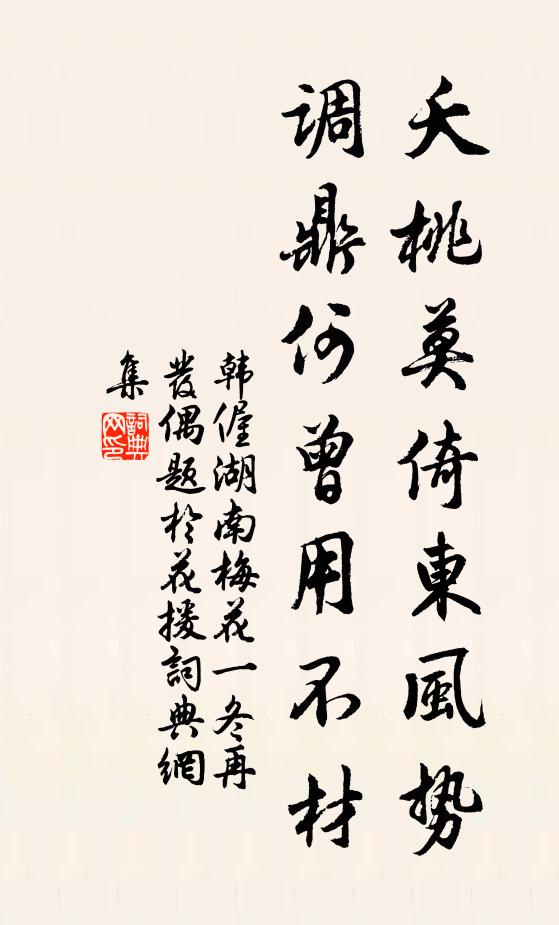 夭桃莫倚東風勢
调鼎何曾用不材
韩偓湖南梅花一冬再
發偶题於花援詞典網
集
詞典網印